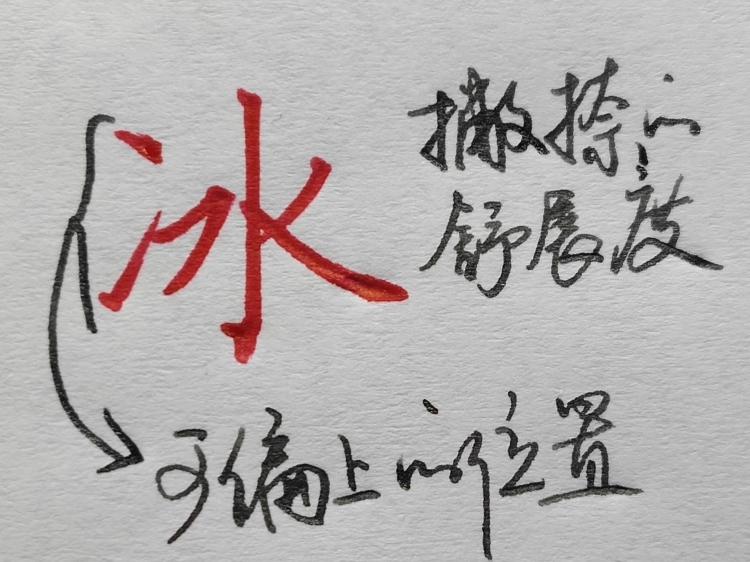 冰
撇捺的
舒展度
可偏上的位置